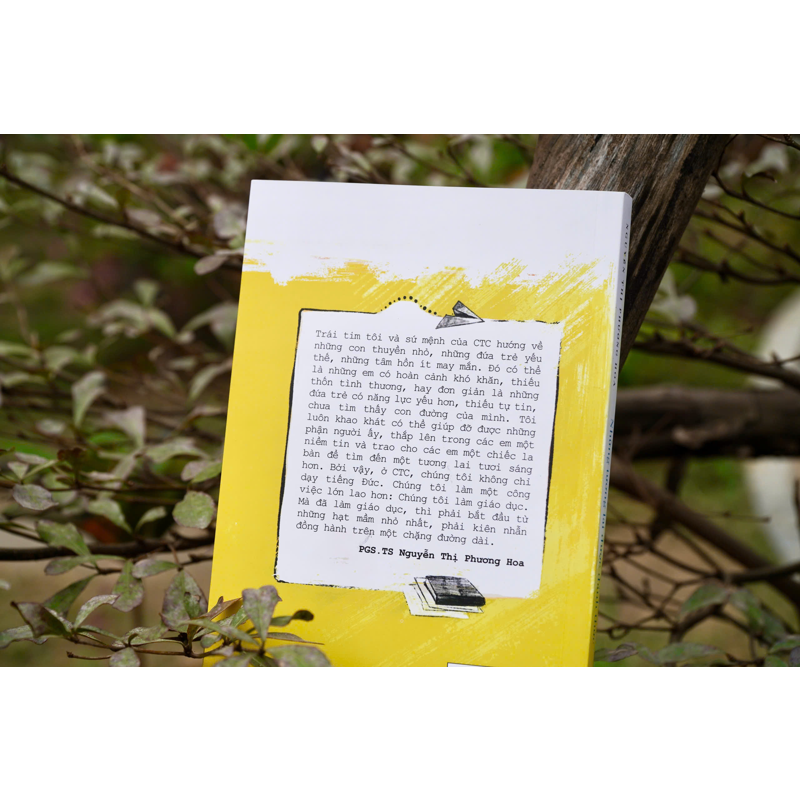 Trái tim tôi và sứ mệnh của CTC hướng về
những con thuyền nhỏ, những đứa trẻ yếu
thế, những tâm hồn ít may mắn. Đó có thể
là những em có hoàn cảnh khó khăn, thiếu
thốn tình thương, hay đơn giản là những
đứa trẻ có năng lực yếu hơn, thiếu tự tin,
chưa tìm thấy con đường của mình. Tôi
luôn khao khát có thể giúp đỡ được những
phận người ấy, thắp lên trong các em một
niềm tin và trao cho các em một chiếc la
bàn để tìm đến một tương lai tươi sáng
hơn. Bởi vậy, ở CTC, chúng tôi không chỉ
dạy tiếng Đức. Chúng tôi làm một công
việc lớn lao hơn: Chúng tôi làm giáo dục.
Mà đã làm giáo dục, thì phải bắt đầu từ
những hạt mầm nhỏ nhất, phải kiên nhẫn
đồng hành trên một chặng đường dài.
PGS.TS Nguyễn Thị Phương Hoa
NGUYỄN THỊ PHƯƠNG HOA